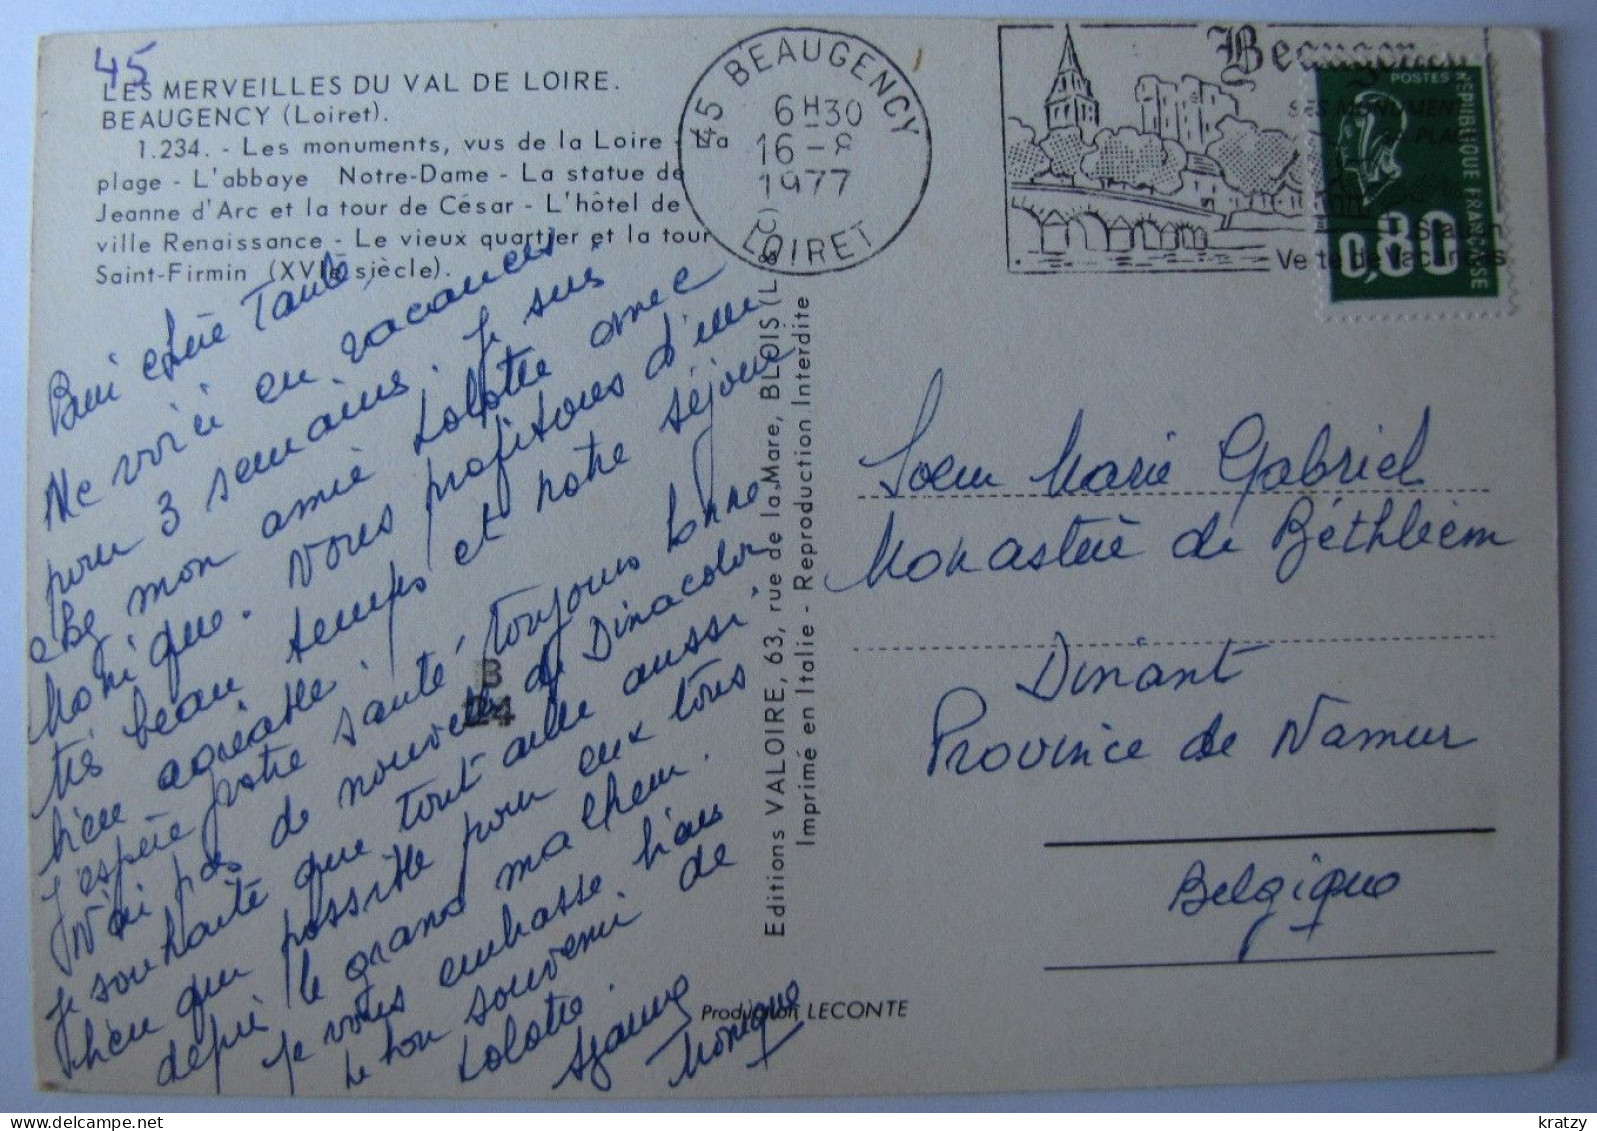 45
LES MERVEILLES DU VAL DE LOIRE.
BEAUGENCY (Loiret).
1.234. - Les monuments, vus de la Loire - La
plage - L'abbaye Notre-Dame - La statue de
Jeanne d'Arc et la tour de César - L'hôtel de
ville Renaissance - Le vieux quartier et la tour
Saint-Firmin (XVIe siècle).
Bien chère Tante,
Me voici en vacances
pour 3 semaines. Je suis
chez mon amie Lolotte avec
Monique. Nous profitons d'un
très beau temps et notre séjour
bien agréable
J'espère votre santé toujours bonne
N'ai pas de nouvelles de Dinacolor
Je souhaite que tout aille aussi
bien que possible pour eux tous
depuis le grand malheur.
Je vous embrasse bien
le bon souvenir de
Lolotte.
Monique
B
24
Editions VALOIRE, 63, rue de la Mare, BLOIS (L
Imprimé en Italie - Reproduction Interdite
Production LECONTE
45 BEAUGENCY
6H30
16-8
1977
LOIRET
Beaugency
SES MONUMENTS
SA PLAGE
Station
Verte de Vacances
POSTES
REPUBLIQUE FRANÇAISE
0,80
Soeur Marie Gabriel
Monastère de Béthléem
Dinant
Province de Namur
Belgique
© kratzy